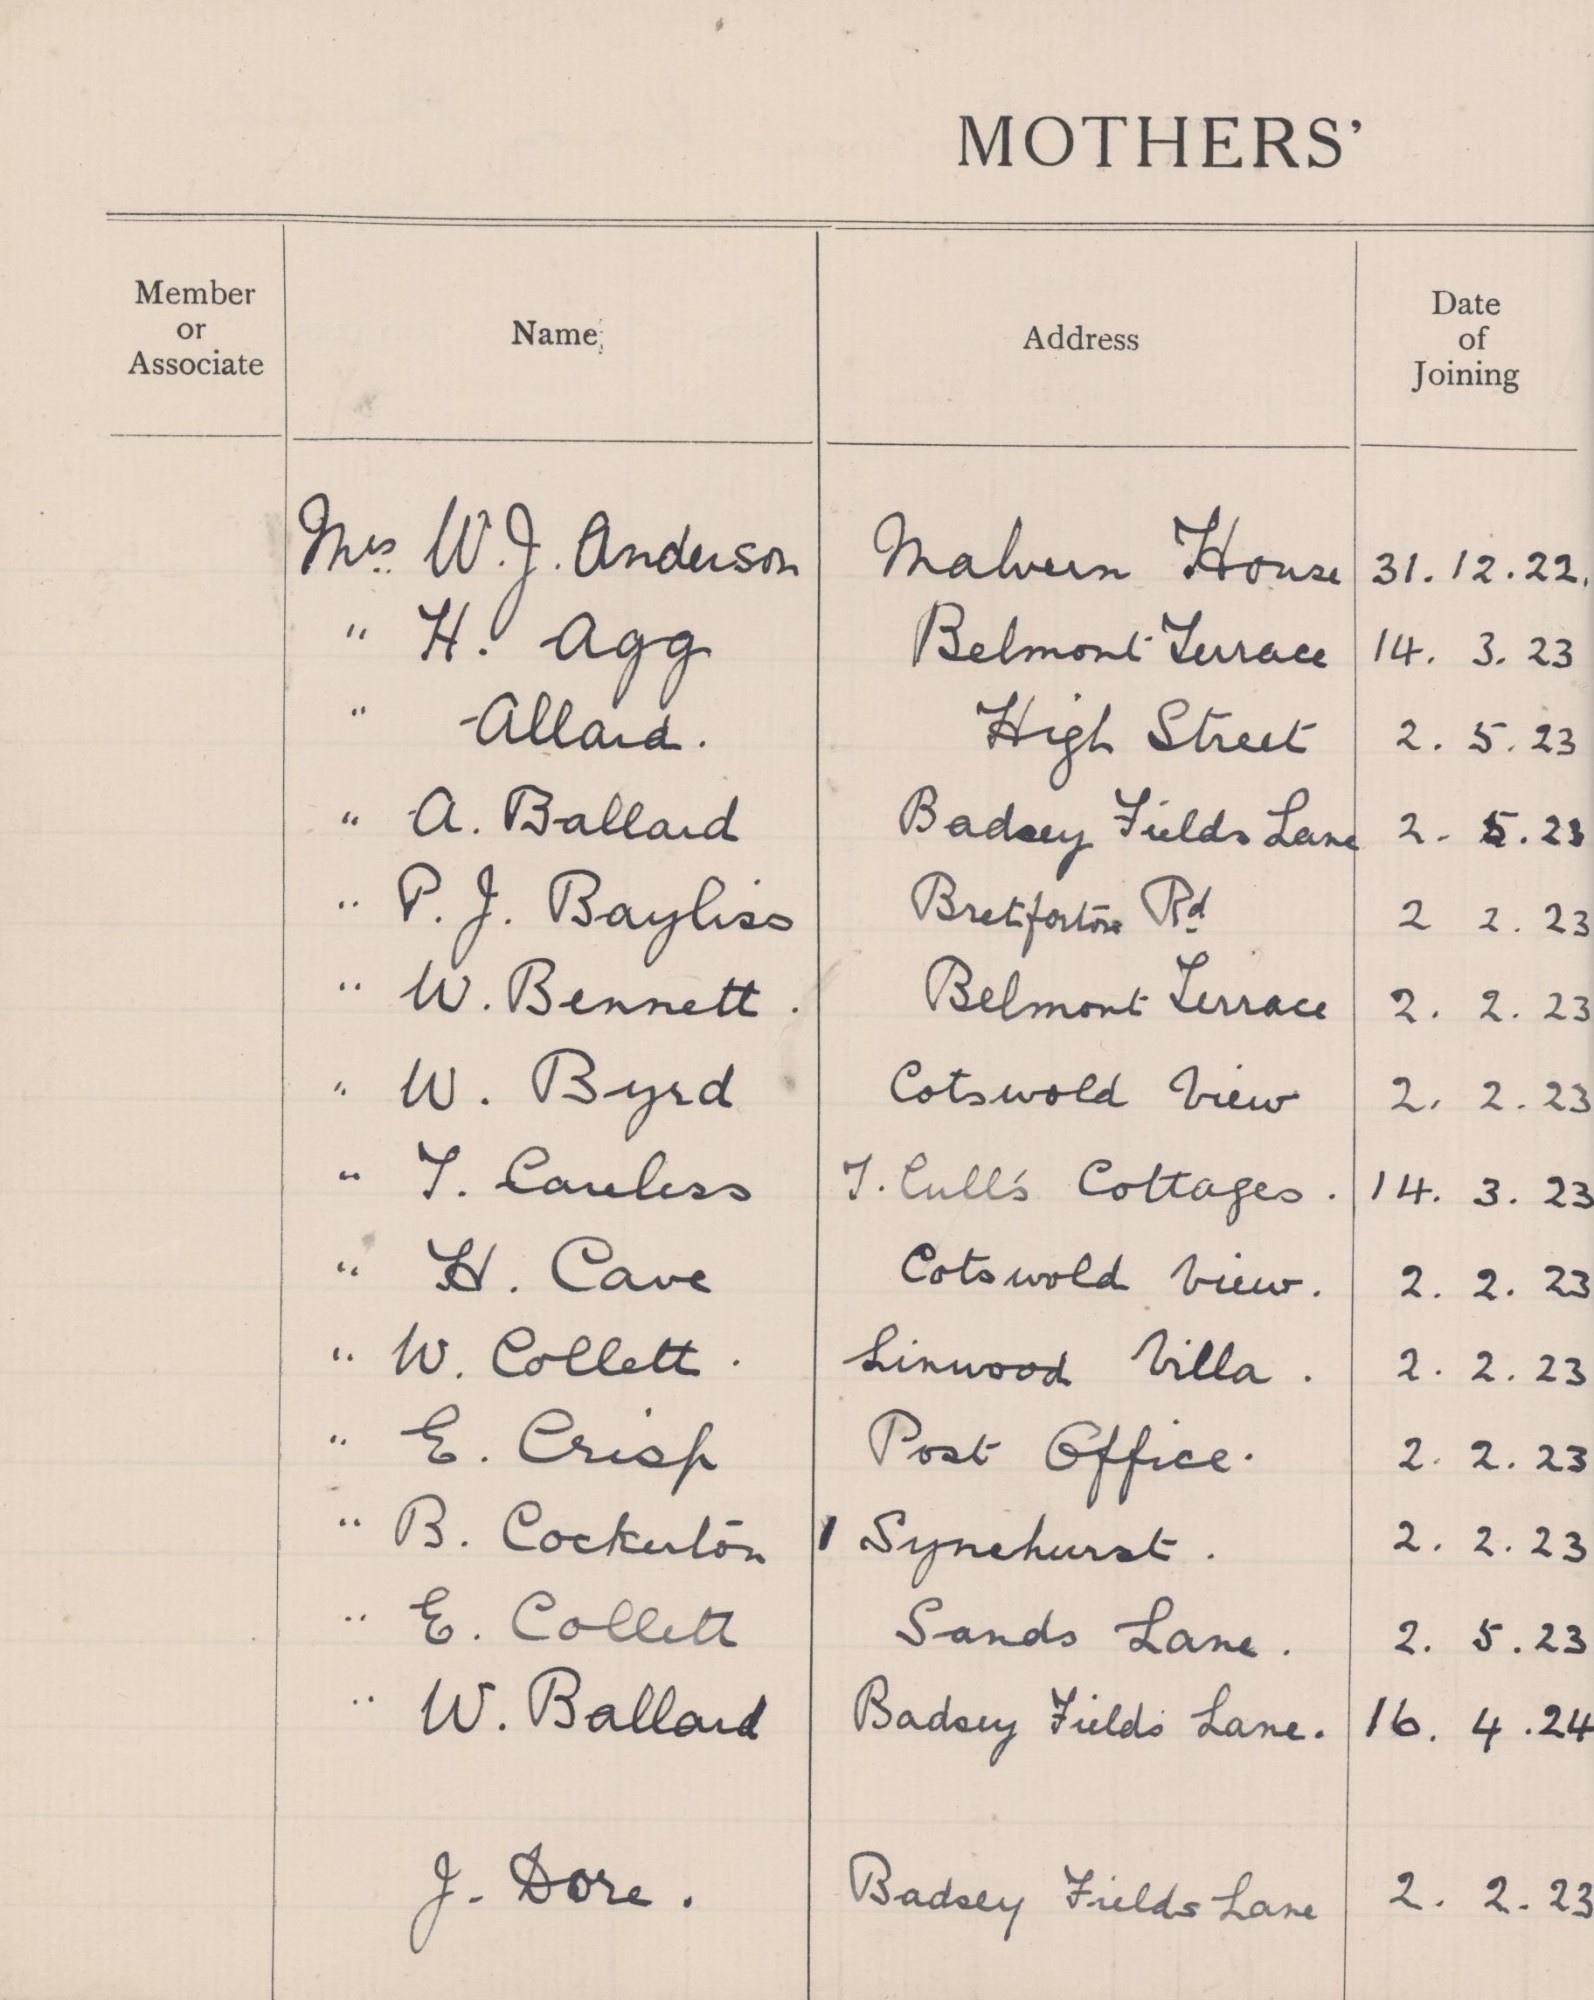 MOTHERS'
Member or Associate Name Address Date of Joining
Mrs. W. J. Anderson Malvern House 31. 12. 22.
" H. Agg Belmont Terrace 14. 3. 23
" Allard. High Street 2. 5. 23
" A. Ballard Badsey Fields Lane 2. 5. 23
" P. J. Bayliss Bretforton Rd 2 2. 23
" W. Bennett. Belmont Terrace 2. 2. 23
" W. Byrd Cotswold View 2. 2. 23
" T. Careless T. Cull's Cottages. 14. 3. 23
" H. Cave Cotswold View. 2. 2. 23
" W. Collett. Linwood Villa. 2. 2. 23
" E. Crisp Post Office. 2. 2. 23
" B. Cockerton 1 Synehurst. 2. 2. 23
" E. Collett Sands Lane. 2. 5. 23
" W. Ballard Badsey Fields Lane. 16. 4. 24
J. Dore. Badsey Fields Lane 2. 2. 23